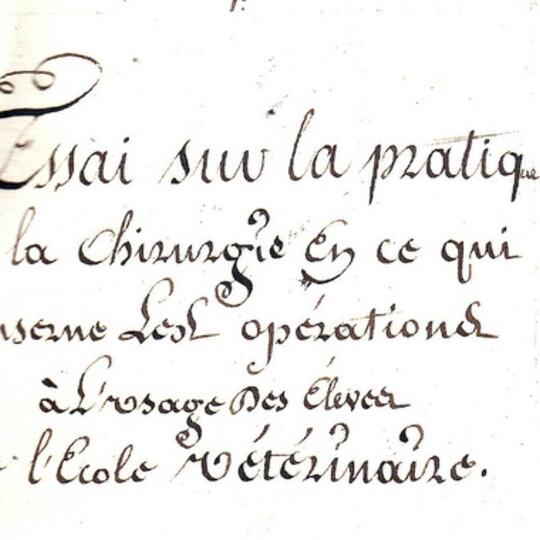 Essai sur la pratique
la Chirurgie En ce qui
nserne Les opérations
à L'usage Des Éleves
l'Ecole vétérinaire.